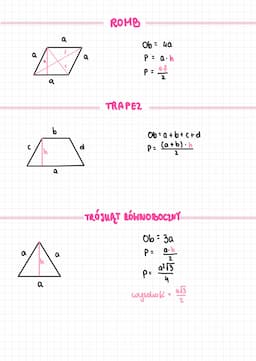 ROMB
a
a
a
a
h
Ob = 4a
P = a·h
P = e·f/2
TRAPEZ
b
c
h
d
a
Ob = a+b+c+d
P = (a+b)·h/2
TRÓJKĄT RÓWNOBOCZNY
a
h
a
a
Ob = 3a
P = a·h/2
P = a²√3/4
wysokość = a√3/2